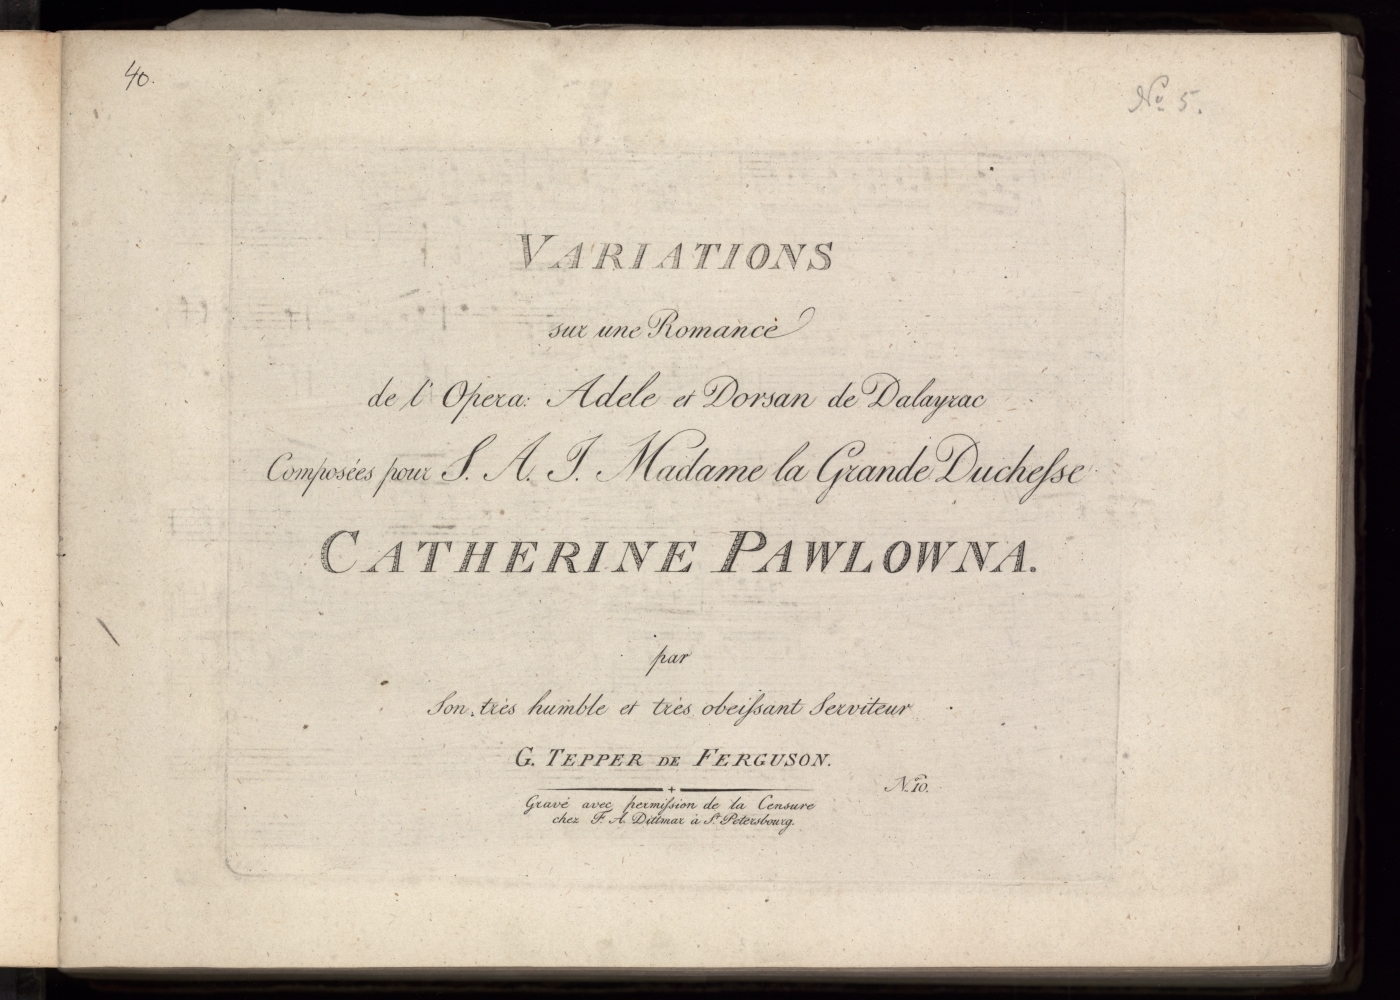 40.
No 5.
VARIATIONS
sur une Romancè
de l' Opera: Adele et Dorsan de Dalayrac
Composées pour S. A. I. Madame la Grande Duchesse
CATHERINE PAWLOWNA.
par
Son très humble et très obeissant Serviteur
G. TEPPER DE FERGUSON.
No 10.
Gravé avec permission de la Censure
chez F. A. Dittmar à St. Petersbourg.